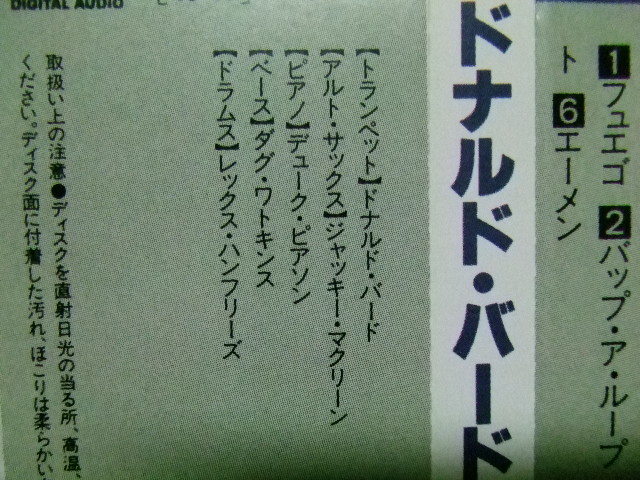 DIGITAL AUDIO
1フュエゴ 2バップ・ア・ループ
ト 6エーメン
ドナルド・バード
【トランペット】ドナルド・バード
【アルト・サックス】ジャッキー・マクリーン
【ピアノ】デューク・ピアソン
【ベース】ダグ・ワトキンス
【ドラムス】レックス・ハンフリーズ
取扱い上の注意●ディスクを直射日光の当る所、高温、
ください。ディスク面に付着した汚れ、ほこりは柔らかい